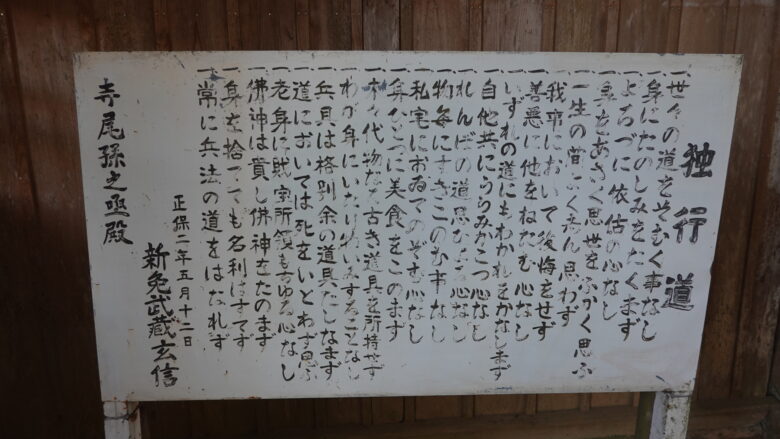 独行道
一世々の道をそむく事なし
一身にたのしみをたくまず
一よろづに依怙の心なし
一身をあさく思世をふかく思ふ
一一生の間よく心思わず
一我事において後悔をせず
一善悪に他をねたむ心なし
一いずれの道にもわかれをかなしまず
一自他共にうらみかこつ心なし
一れんぼの道思ひよる心なし
一物毎にすきこのむ事なし
一私宅におゐてのぞむ心なし
一身ひとつに美食をこのまず
一末々代物なる古き道具を所持せず
一わが身にいたり物いみすることなし
一兵具は格別余の道具たしなまず
一道においては死をいとわず思ふ
一老身に財宝所領もちゆる心なし
一佛神は貴し佛神をたのまず
一身を捨てても名利はすてず
一常に兵法の道をはなれず
正保二年五月十二日
新免武蔵玄信
寺尾孫之亟殿